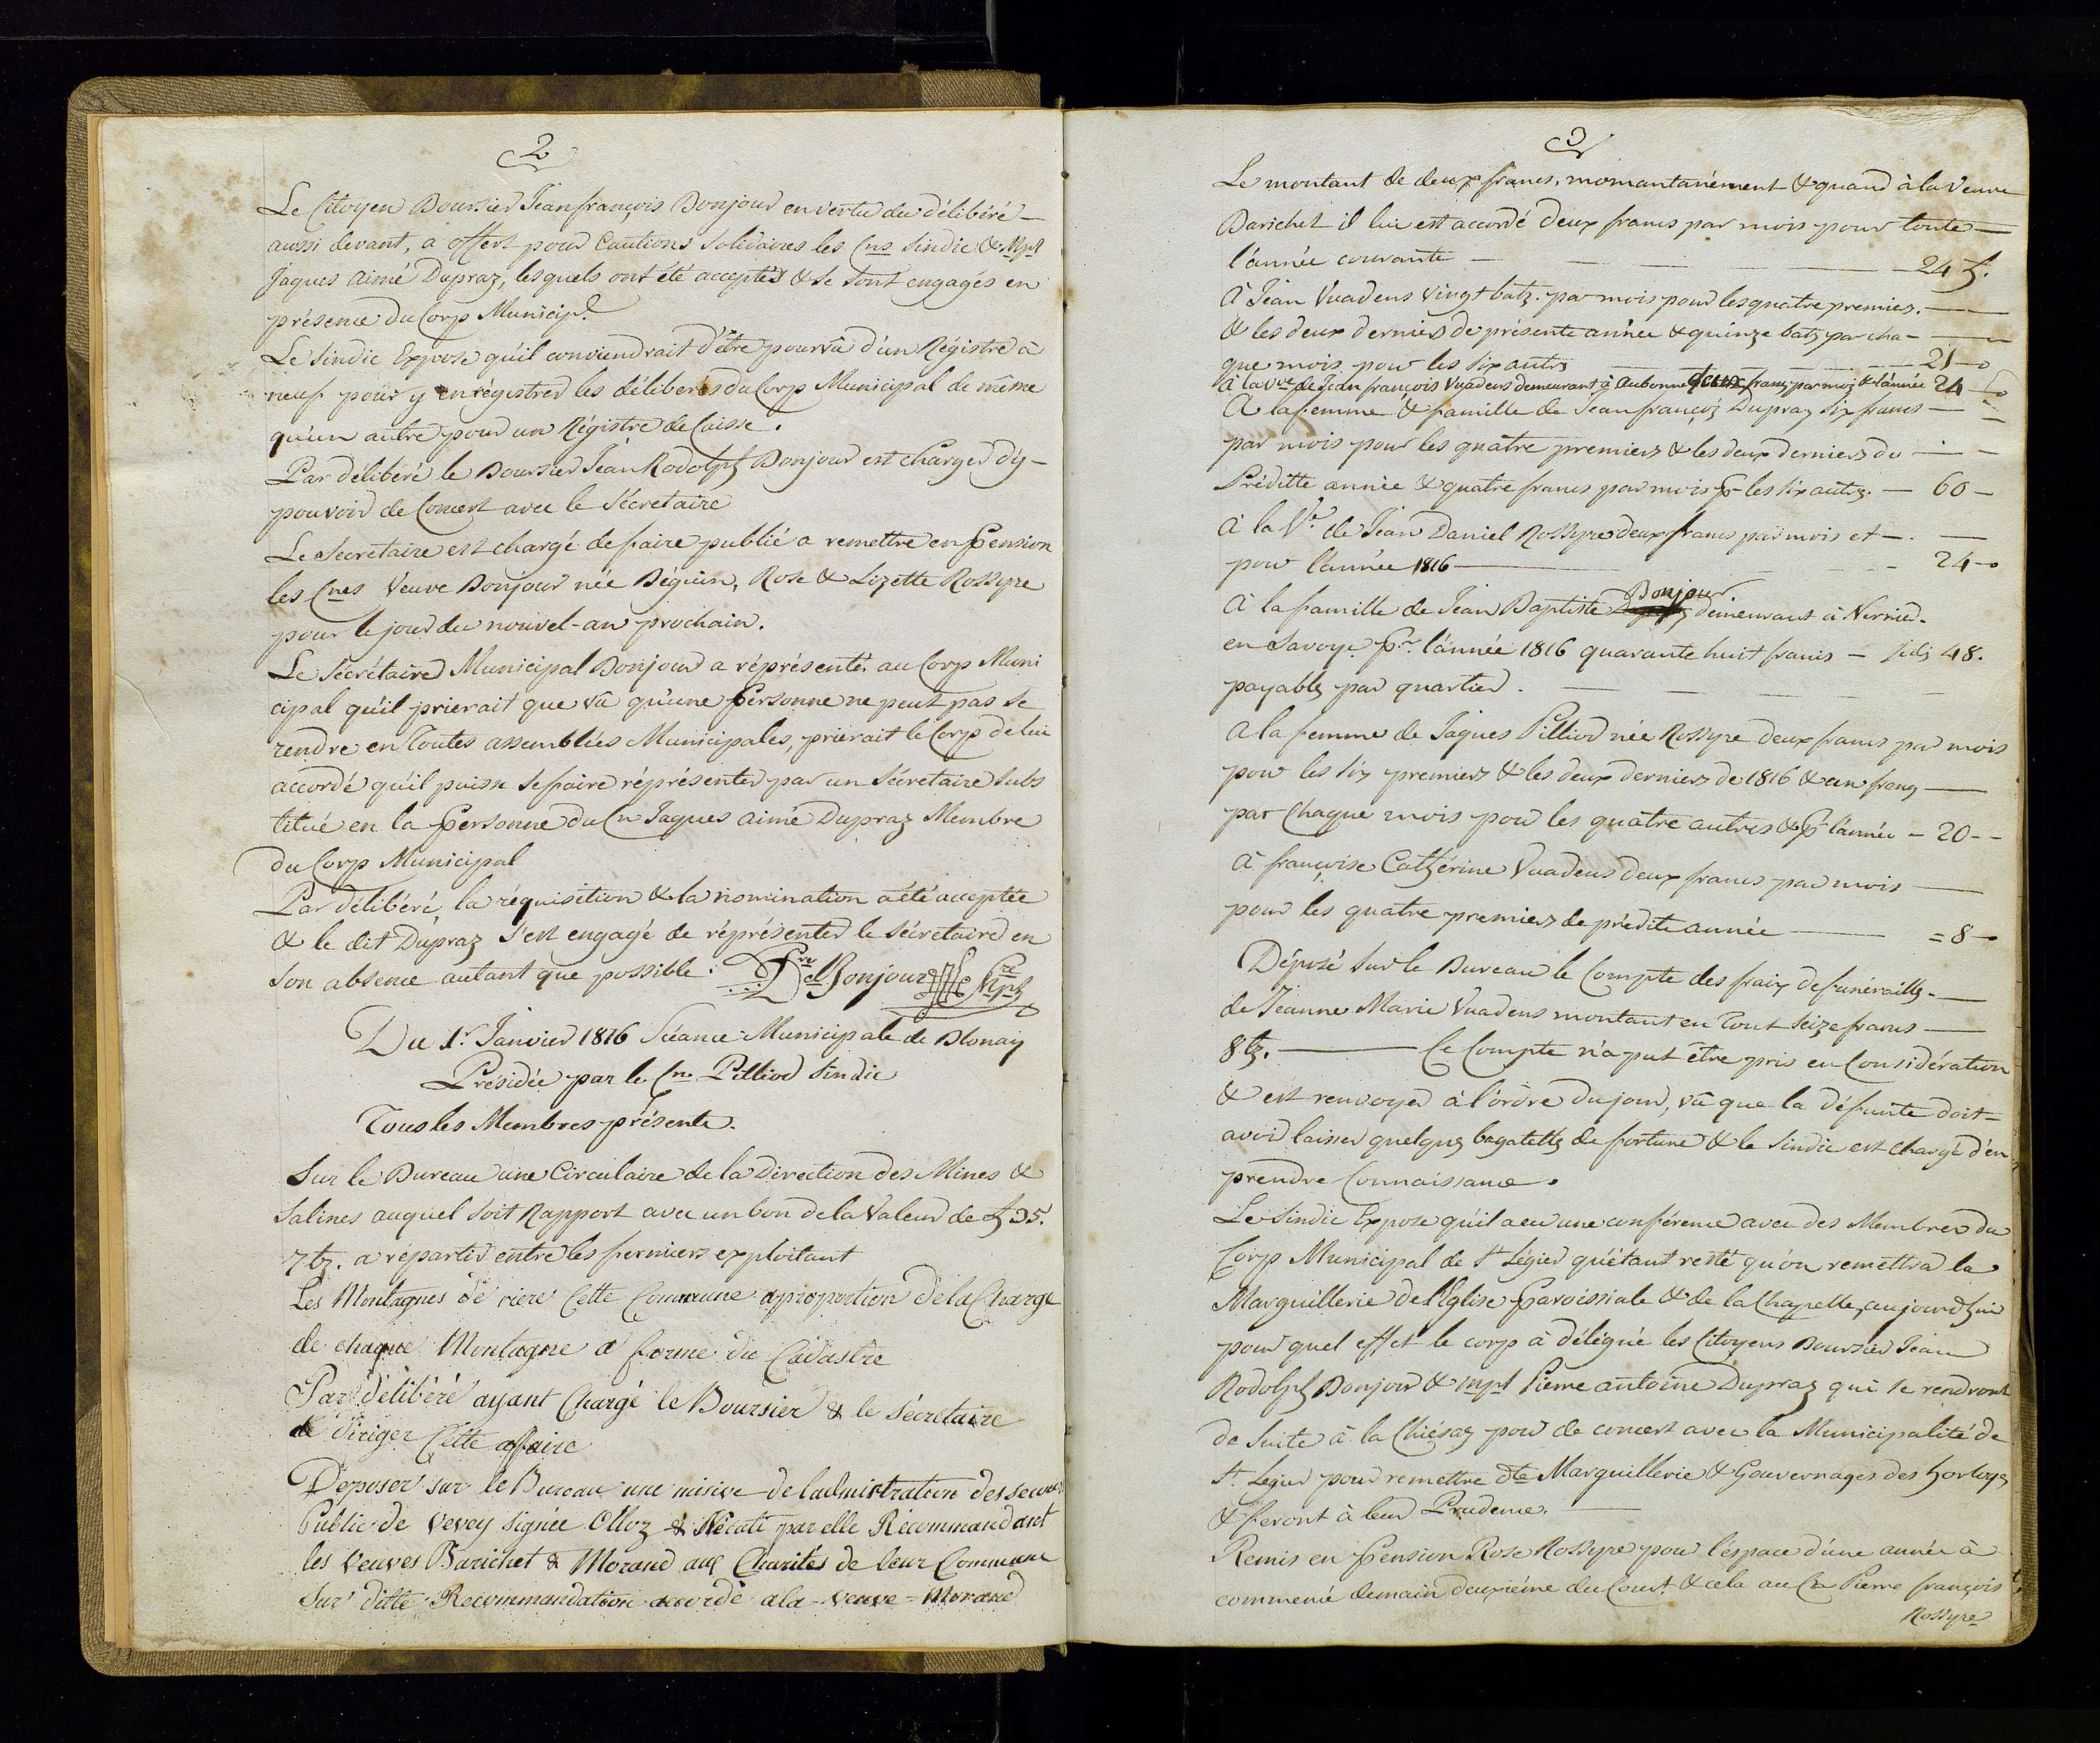 2
Le Citoyen Boursier Jean françois Bonjour en vertu du délibéré
aussi devant, a offert pour Cautions Solidaires les Cns Sindic & Mpl
Jaques Aimé Dupraz, lesquels ont été acceptés & se sont engagés en
présence du Corp Municipl
Le Sindic Expose qu'il conviendrait d'être pourvû d'un Régistre à
neuf pour y enrégistrer les déliberés du Corp Municipal de même
qu'un autre pour un Régistre de Caisse.
Par délibéré le Boursier Jean Rodolph Bonjour est charger d'y
pouvoir de Concert avec le Sécretaire
Le Secretaire est chargé de faire publié a remettre en Pension
les Cnes Veuve Bonjour née Béguin, Rose & Lizette Rossyre
pour le jour du nouvel-an prochain.
Le Sécrétaire Municipal Bonjour a réprésenté au Corp Muni
cipal qu'il prierait que vû qu'une Personne ne peut pas se
rendre en Toutes assemblées Municipales, prierait le Corp de lui
accordé qu'il puisse se faire réprésenter par un Sécretaire Subs
titué en la Personne du Cn Jaques aimé Dupraz Membre
du Corp Municipal
Par délibéré, la réquisition & la nomination a été acceptée
& le dit Dupraz s'est engagé de réprésenter le Sécretaire en
son absence autant que possible. Bonjour
Du 1r. Janvier 1816 Séance Municipale de Blonay
Présidée par le Cn. Pilliod Sindic
Tous les Membres présents.
Sur le Bureau une Circulaire de la Direction des Mines &
Salines auquel soit Rapport avec un bon de la Valeur de 35.
7 bz. a répartir entre les fermiers exploitant
Les Montagnes de riere Cette Commune a proportion de la Charge
de chaque Montagne a forme du Cadastre
Par délibéré ayant Chargé le Boursier & le Sécretaire
de diriger Cette affaire
Deposer sur le Bureau une misive de l'admistration des secours
Public de Vevey Signée Olloz & par elle Recommandant
les Veuves Barichet & Morand aux Charités de leur Commune
Sur ditte Recommandation accordé a la veuve Morand
3
Le montant de deux francs, momantanément & quand à la Veuve
Barichet il lui est accordé deux francs par mois pour toute
l'année courante 24 f.
à Jean Vuadens vingt batz. par mois pour les quatre premiers.
& les deux derniers de présente année & quinze batz par cha-
que mois pour les six autres 21
à la Vve de Jean françois Vuadens demeurant à Aubonne deux francs par moiz & l'année 24
A la femme & famille de Jean françoiz Dupraz six francs
par mois pour les quatre premiers & les deux derniers de
Préditte année & quatre francs par mois pr les six autrs. 60
à la Ve de Jean Daniel Rossyre deux francs par mois et
pour l'année 1816 24
à la famille de Jean Baptiste Bonjour demeurant à Nernier.
en Savoye pr. l'année 1816 quarante huit francs 48.
payables par quartier.
a la femme de Jaques Pilliod née Rossyre deux francs par mois
pour les six premiers & les deux derniers de 1816 & un franc
par Chaque mois pour les quatre autres & pr l'année 20
à françoise Cathérine Vuadens deux francs par mois
pour les quatre premiers de prédite année = 8
Déposé sur le Bureau le Compte des fraix de funérailles
de Jeanne Marie Vuadens montant en Tout seize francs
8 bz. Ce Compte n'a put être pris en Considération
& est renvoyer à l'ordre du jour, vû que la défunte doit
avoir laisser quelques bagatelles de fortune & le Sindic est chargé d'en
prendre Connaissance.
Le Sindic Expose qu'il a eu une conférence avec des Membres du
Corp Municipal de St Légier qu'étant resté qu'on remettra la
Marguillerie de l'Eglise Paroissiale & de la Chapelle, aujourd'hui
pour quel effet le corp à délégué les Citoyens Boursier Jean
Rodolph Bonjour & mpl Pierre antoine Dupraz qui se rendront
de suite à la Chiésaz pour de concert avec la Municipalité de
St. Legier pour remettre dte Marguillerie & Gouvernages des horloges
& feront à leur Prudence.
Remis en Pension Rose Rossyre pour l'espace d'une année à
commencé demain deuxième du Court. & cela au Cn Pierre françois
Rossyre